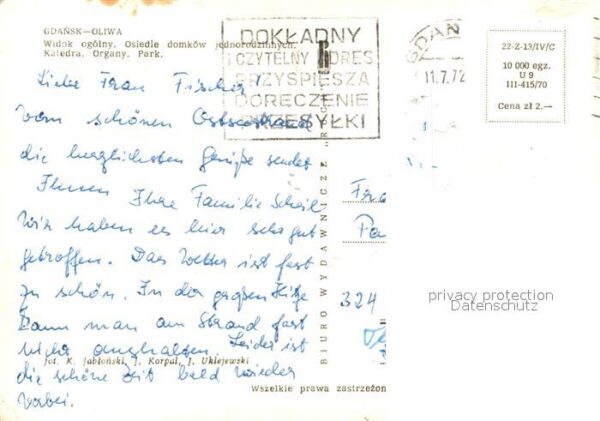 GDAŃSK—OLIWA
Widok ogólny. Osiedle domków jednorodzinnych.
Katedra. Organy. Park.
DOKŁADNY
I CZYTELNY ADRES
PRZYSPIESZA
DORĘCZENIE
PRZESYŁKI
GDAŃ
11.7.72
22-Z-13/IV/C
10 000 egz.
U 9
III-415/70
Cena zł 2.—
Liebe Frau Fischer!
Vom schönen Ostseestrand
die herzlichsten Grüße sendet
Ihnen Ihre Familie Scheil
Wir haben es hier sehr gut
getroffen. Das Wetter ist fast
zu schön. In der großen Hitze
kann man am Strand fast
nicht aushalten. Leider ist
die schöne Zeit bald wieder
vorbei.
Fra
324
privacy protection
Datenschutz
BIURO WYDAWNICZE
fot. K. Jabłoński, J. Korpal, J. Uklejewski
Wszelkie prawa zastrzeżon